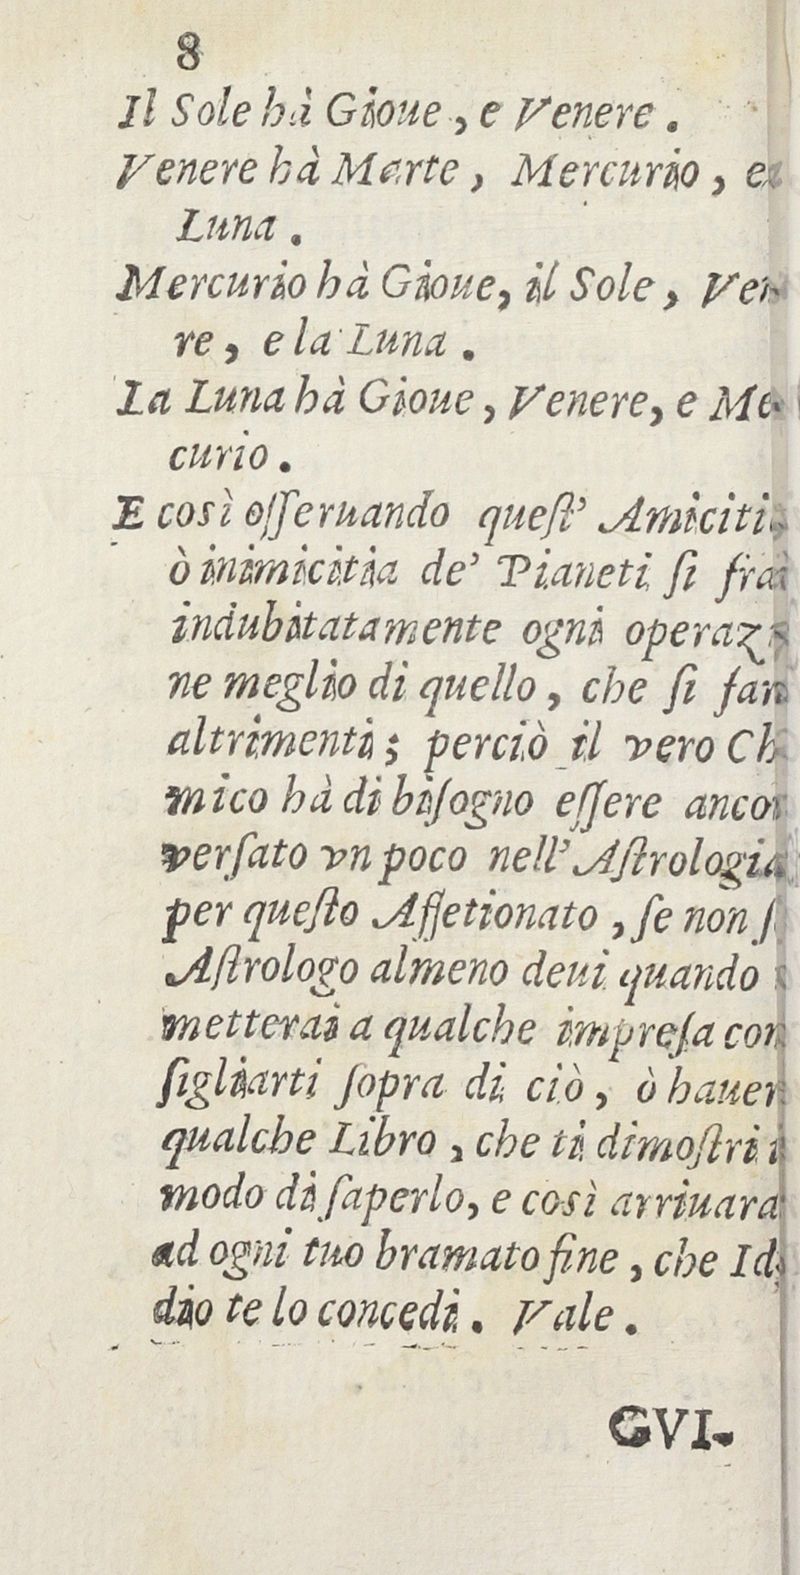 8
Il Sole hà Gioue, e Venere.
Venere hà Marte, Mercurio, e
Luna.
Mercurio hà Gioue, il Sole, Ven
re, e la Luna.
La Luna hà Gioue, Venere, e Me
curio.
E così oſſeruando queſt' Amiciti
ò inimicitia de' Pianeti ſi frà
indubitatamente ogni operaz
ne meglio di quello, che ſi fan
altrimenti; perciò il vero Ch
mico hà di biſogno eſſere ancor
verſato vn poco nell' Aſtrologia
per queſto Affetionato, ſe non ſ
Aſtrologo almeno deui quando
metterai a qualche impreſa con
ſigliarti ſopra di ciò, ò hauer
qualche Libro, che ti dimoſtri i
modo di ſaperlo, e così arriuara
ad ogni tuo bramato fine, che Id
dio te lo concedi. Vale.
GVI-